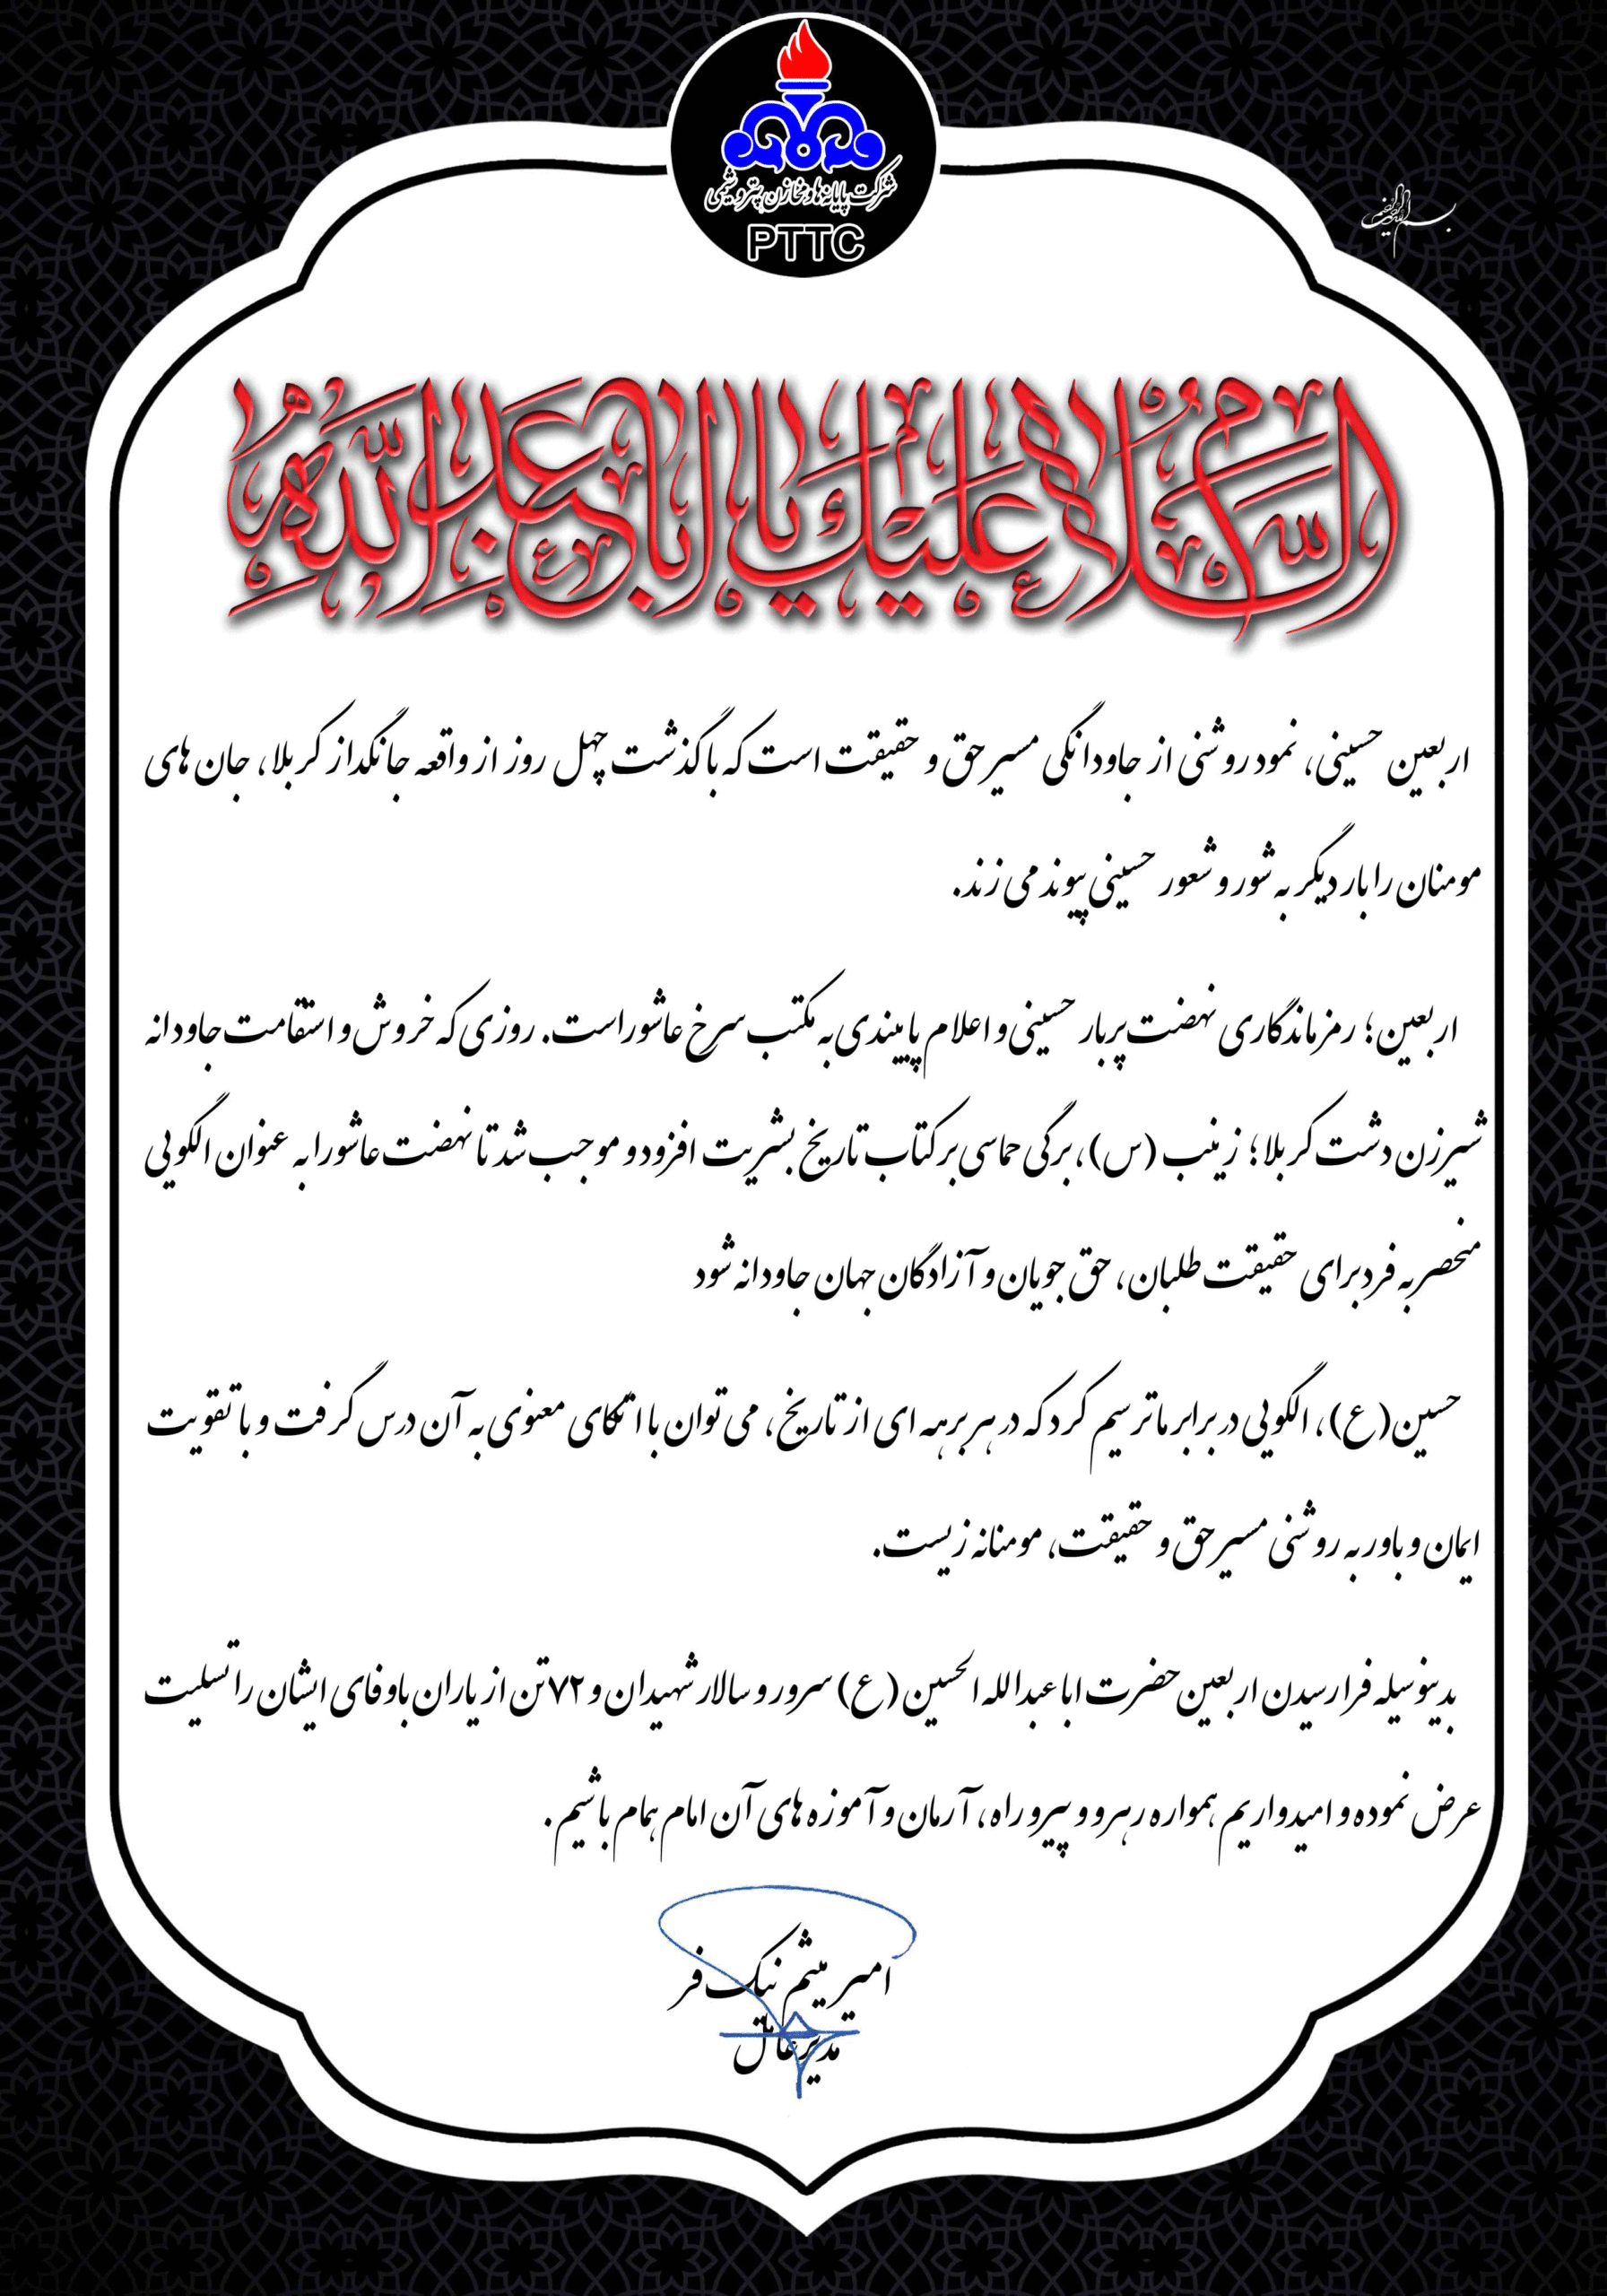 شرکت پایانه‌ها و مخازن پتروشیمی
PTTC
بسم الله الرحمن الرحیم
السلام علیك یا اباعبدالله
اربعین حسینی، نمود روشنی از جاودانگی مسیر حق و حقیقت است که با گذشت چهل روز از واقعه جانگداز کربلا، جان های
مومنان را بار دیگر به شور و شعور حسینی پیوند می زند.
اربعین؛ رمز ماندگاری نهضت پربار حسینی و اعلام پایبندی به مکتب سرخ عاشوراست. روزی که خروش و استقامت جاودانه
شیرزن دشت کربلا؛ زینب (س)، برگی حماسی بر کتاب تاریخ بشریت افزود و موجب شد تا نهضت عاشورا به عنوان الگویی
منحصر به فرد برای حقیقت طلبان، حق جویان و آزادگان جهان جاودانه شود
حسین(ع)، الگویی در برابر ما ترسیم کرد که در هر برهه ای از تاریخ، می توان با اتکای معنوی به آن درس گرفت و با تقویت
ایمان و باور به روشنی مسیر حق و حقیقت، مومنانه زیست.
بدینوسیله فرارسیدن اربعین حضرت اباعبدالله الحسین (ع) سرور و سالار شهیدان و ۷۲ تن از یاران باوفای ایشان را تسلیت
عرض نموده و امیدواریم همواره رهرو و پیرو راه، آرمان و آموزه های آن امام همام باشیم.
امیر میثم نیک فر
مدیرعامل